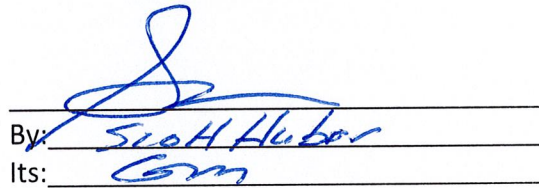 By: Scott Huber
Its: GM